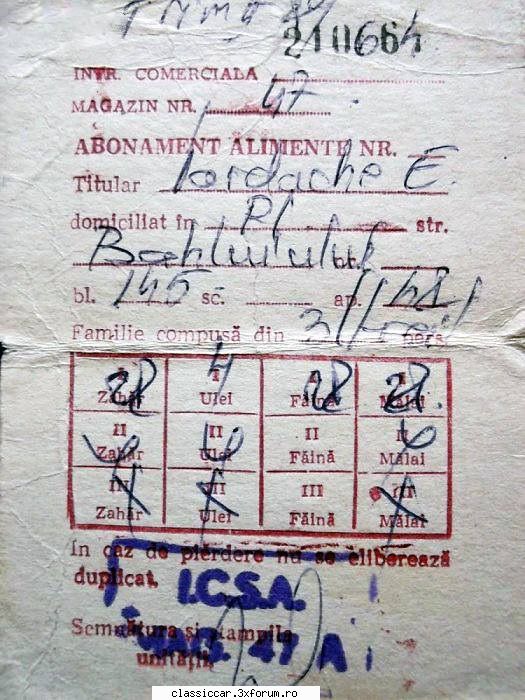 210664
INTR. COMERCIALA
MAGAZIN NR. 47
ABONAMENT ALIMENTE NR.
Titular Iordache E.
domiciliat în Pl. str.
Bahluiului nr.
bl. 145 sc. ap.
Familie compusă din 3 (trei) pers.
I I I I
28 4 28 28.
Zahăr Ulei Făină Mălai
II II II II
Zahăr Ulei Făină Mălai
III III III III
Zahăr Ulei Făină Mălai
În caz de pierdere nu se eliberează
duplicat.
I.C.S.A.
Semnătura și ștampila
unității
47 A
classiccar.3xforum.ro